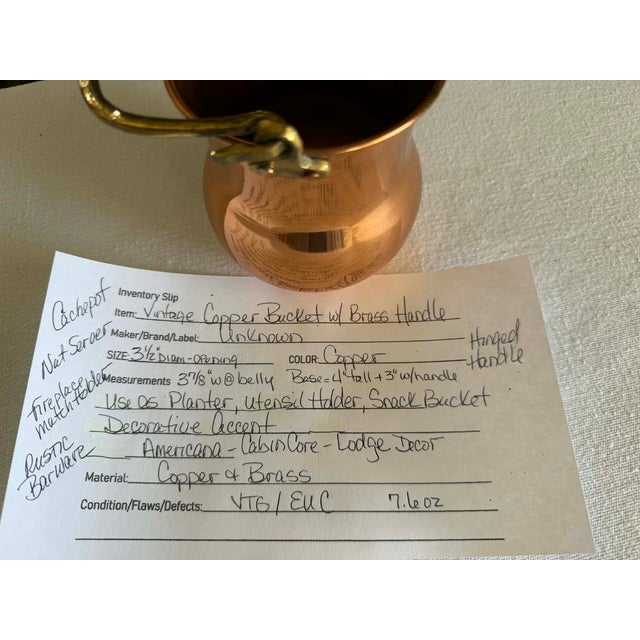 Inventory Slip
Item: Vintage Copper Bucket w/ Brass Handle
Maker/Brand/Label: Unknown
SIZE: 3 1/2" Diam-opening COLOR: Copper
Hinged
Handle
Measurements 3 7/8" w @ belly Base = 4" tall + 3" w/handle
Use as Planter, utensil Holder, Snack Bucket
Decorative accent
Americana - CabinCore - Lodge Decor
Material: Copper & Brass
Condition/Flaws/Defects: VTG / EUC 7.6 oz
Cachepot
Nut Server
Fireplace
Match Holder
Rustic
Barware